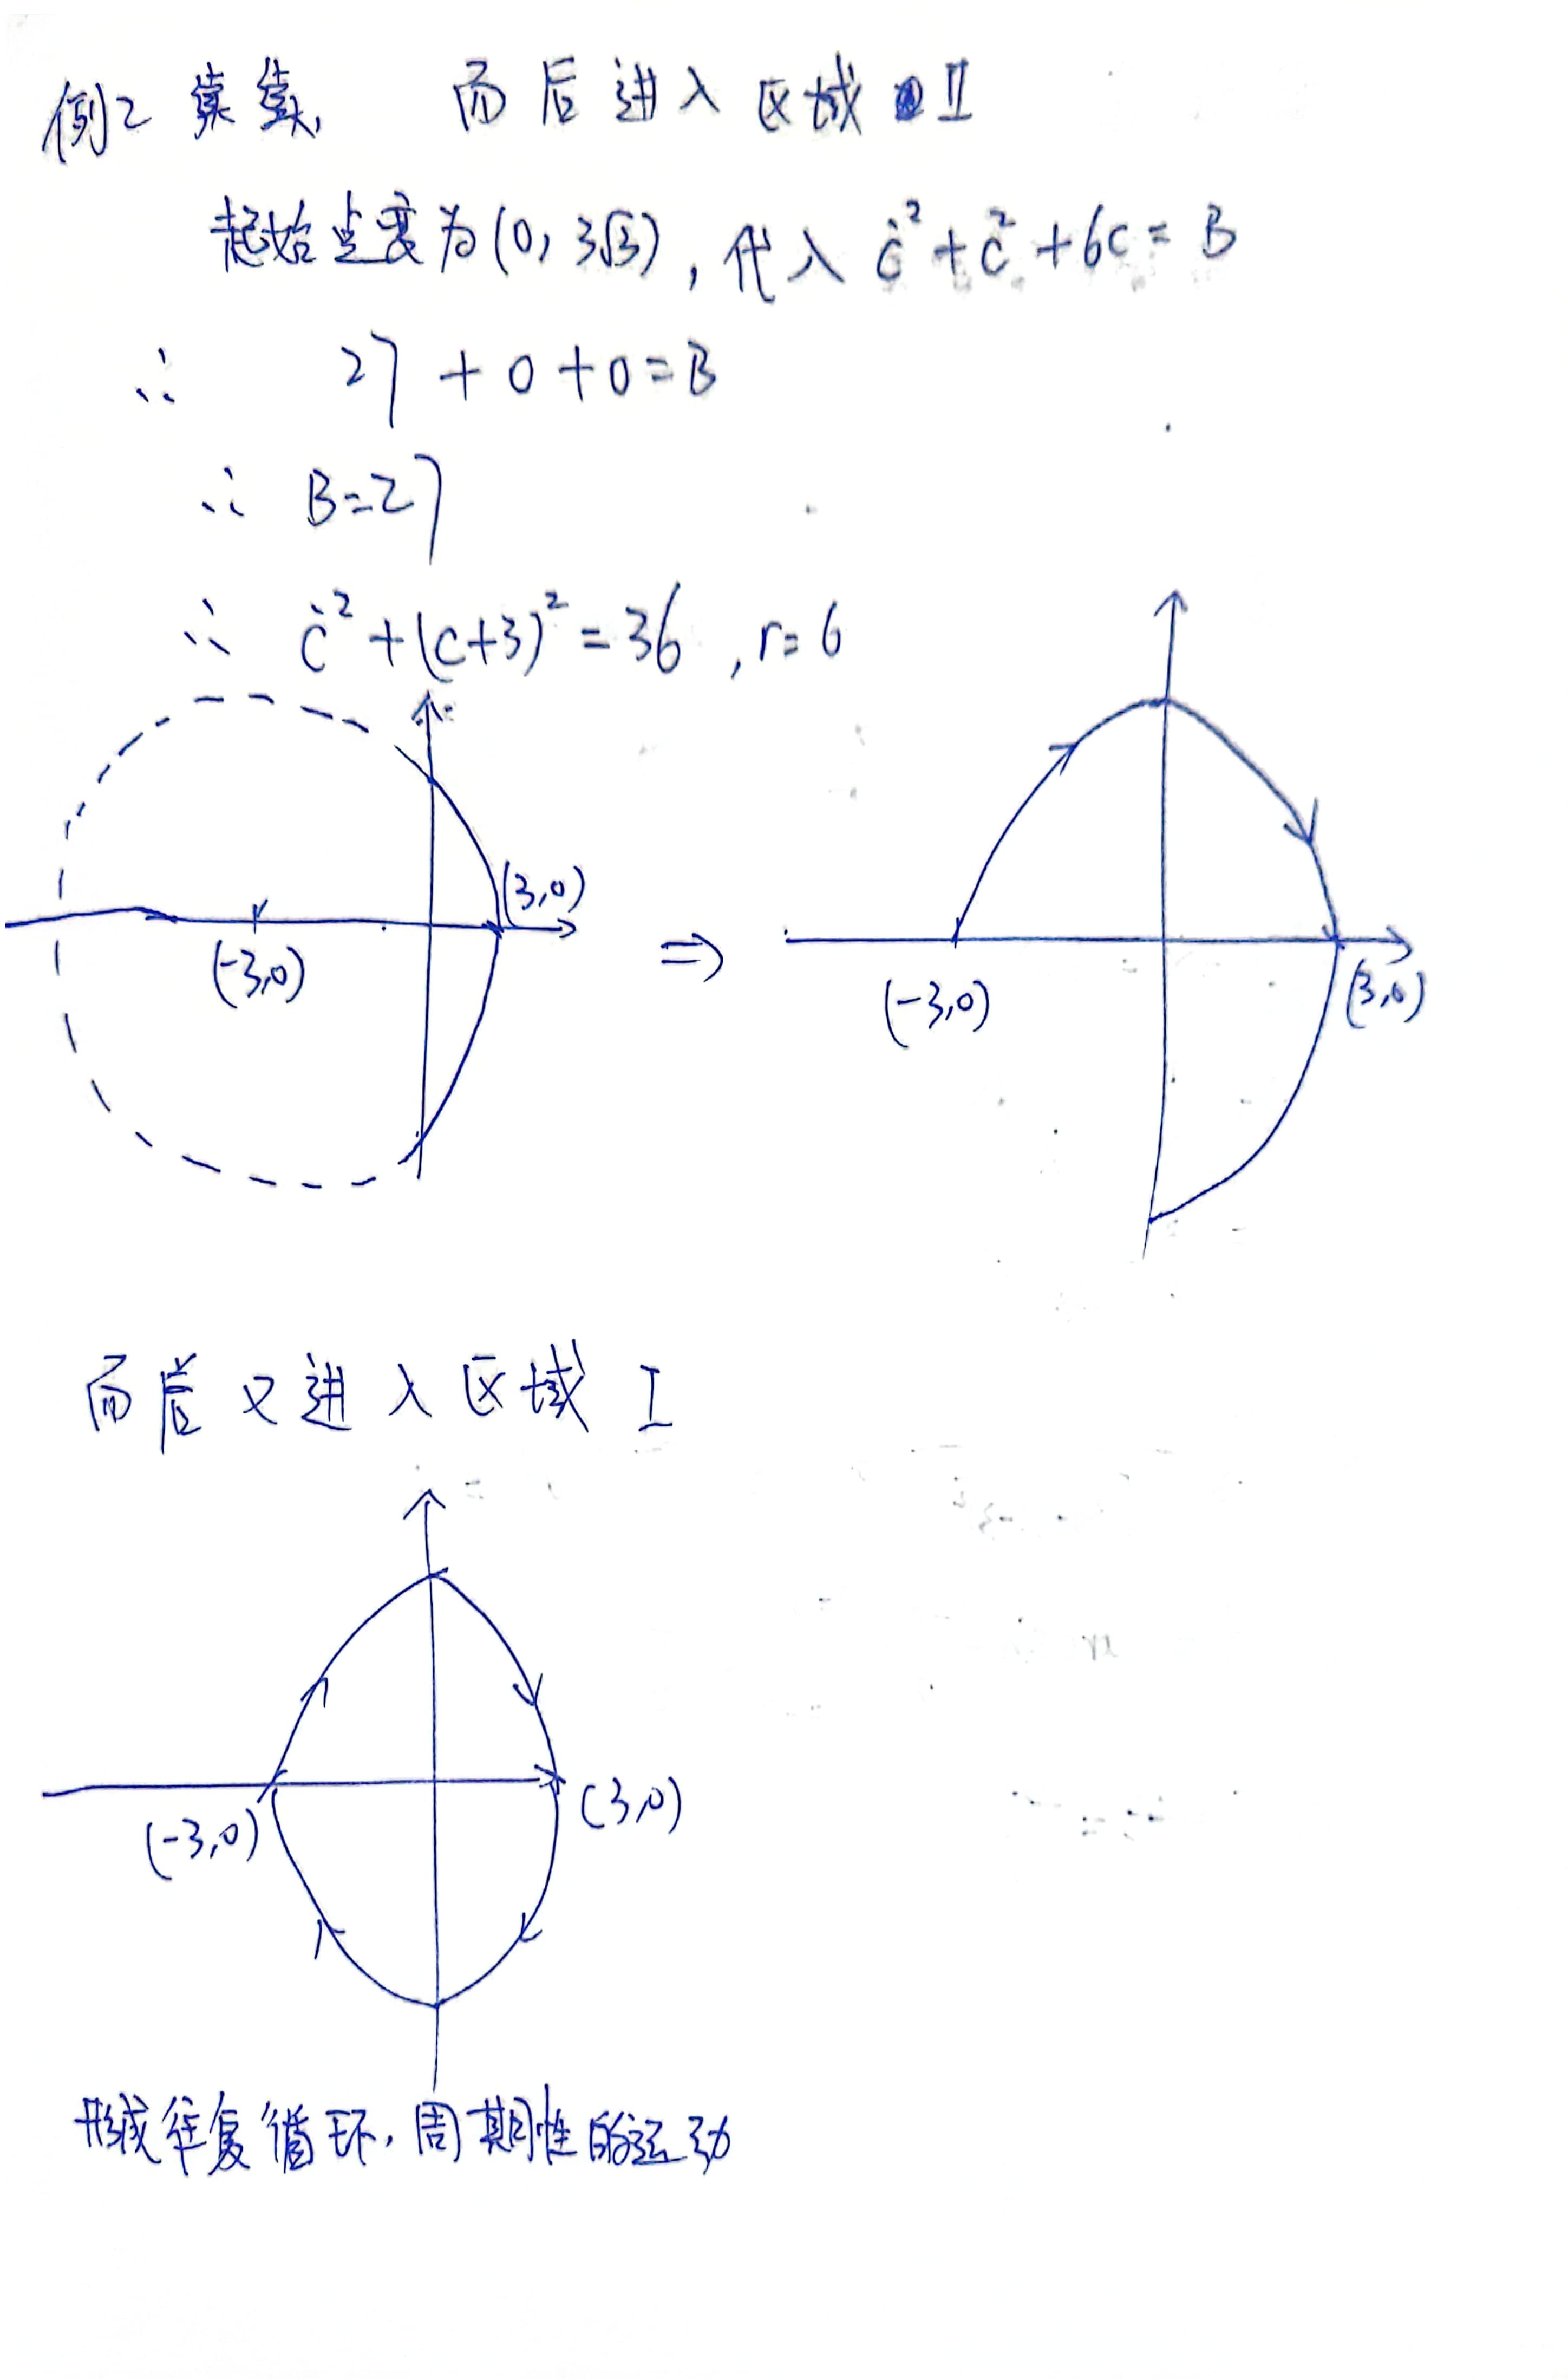 例2 续集, 而后进入区域 II
起始点变为(0, 3√3), 代入 ċ²+c²+6c=B
∴ 27+0+0=B
∴ B=27
∴ ċ²+(c+3)²=36, r=6
(3,0)
(-3,0)
⇒
(-3,0)
(3,0)
而后又进入区域 I
(-3,0)
(3,0)
形成往复循环, 周期性的运动